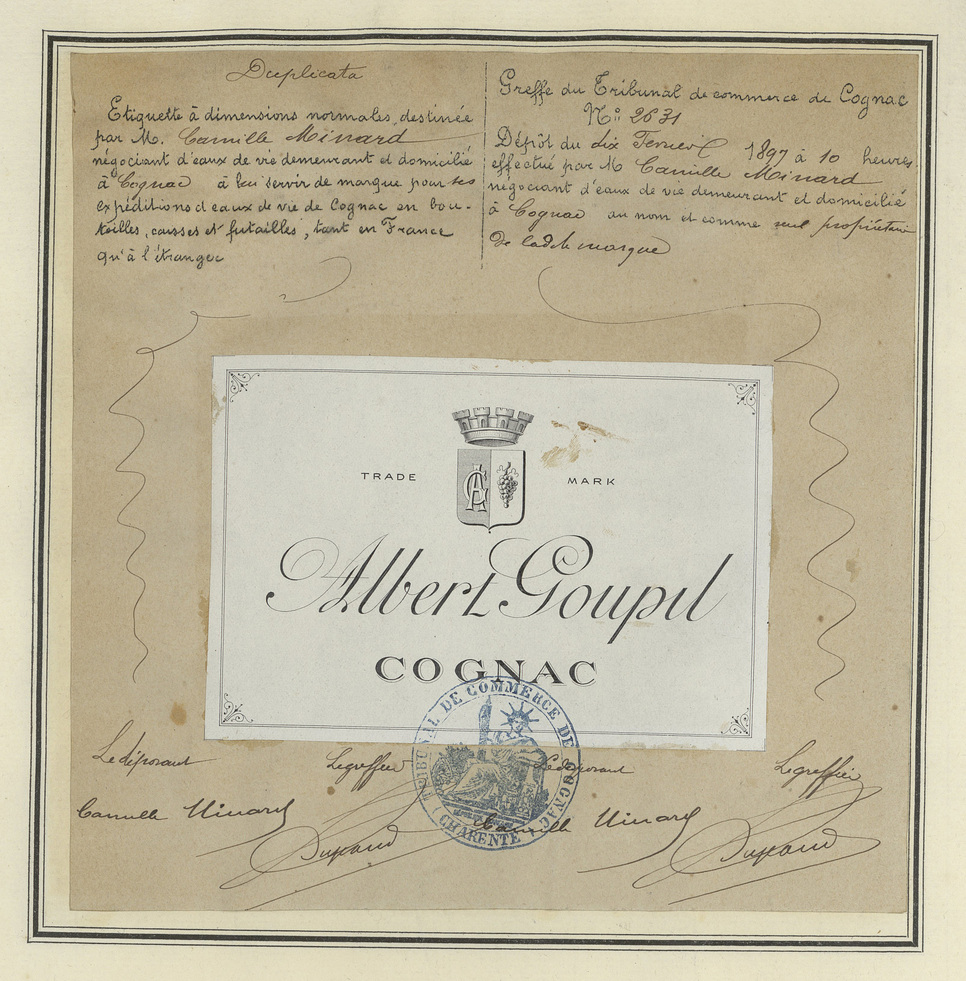 Duplicata
Etiquette à dimensions normales, destinée
par M. Camille Minard
négociant d'eaux de vie demeurant et domicilié
à Cognac à lui servir de marque pour ses
expéditions d'eaux de vie de Cognac en bou-
teilles, caisses et futailles, tant en France
qu'à l'étranger
Greffe du Tribunal de commerce de Cognac
N° 2631
Dépôt du dix Fevrier 1897 à 10 heures
effectué par M Camille Minard
négociant d'eaux de vie demeurant et domicilié
à Cognac au nom et comme seul propriétaire
de ladte marque
TRADE MARK
AG
Albert Goupil
COGNAC
TRIBUNAL DE COMMERCE DE COGNAC
CHARENTE
Le déposant Le greffier Le déposant Le greffier
Camille Minard Camille Minard